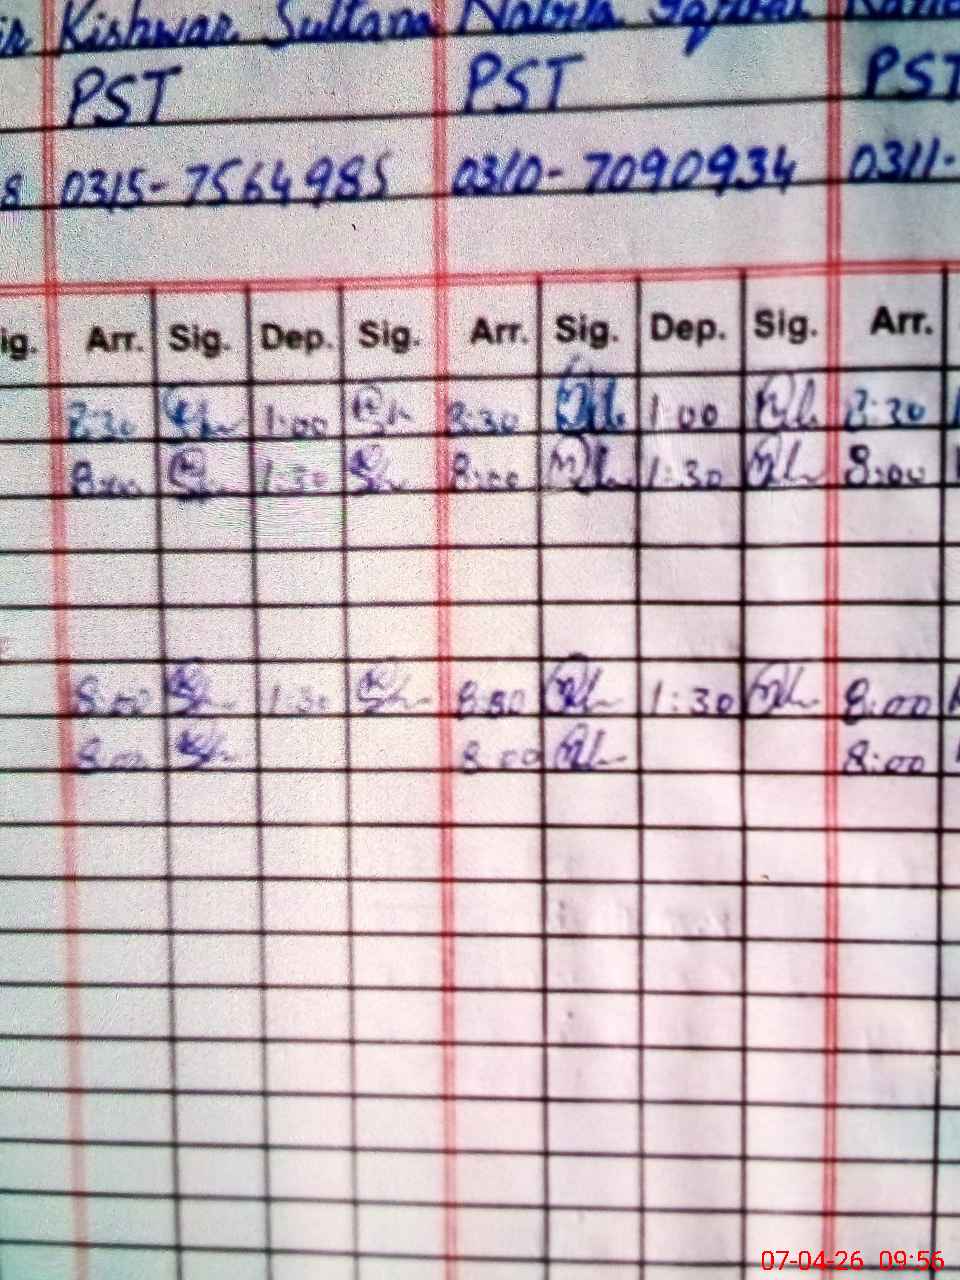 Kishwar Sultana Nabila Iqbal
PST PST PST
8 0315-7564985 0310-7090934 0311-
ig. Arr. Sig. Dep. Sig. Arr. Sig. Dep. Sig. Arr.
8:30 1:00 8:30 1:00 8:30
8:00 1:30 8:00 1:30 8:00
8:00 1:30 8:00 1:30 8:00
8:00 8:00 8:00
07-04-26 09:56